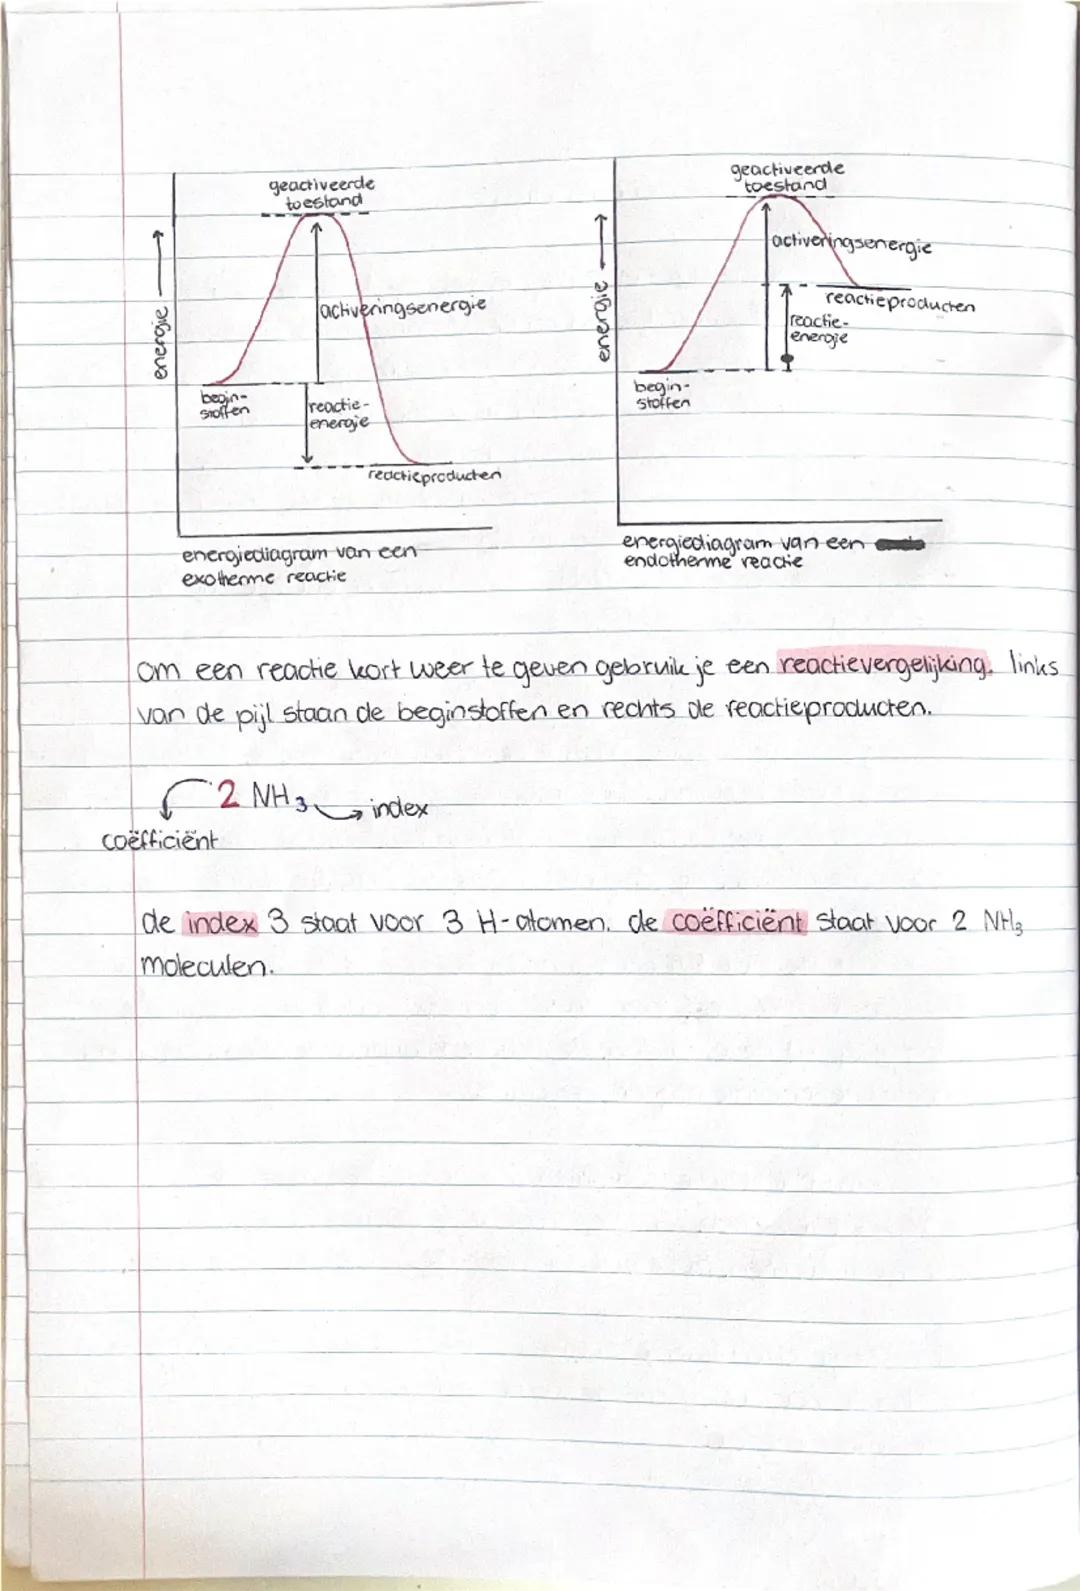 geactiveerde
toestand
energie
activeringsenergie
begin-
stoffen
reactie-
energie
reactieproducten
energiediagram van een
exotherme reactie
geactiveerde
toestand
energie
activeringsenergie
reactieproducten
reactie-
energie
begin-
stoffen
energiediagram van een
endotherme reactie
om een reactie kort weer te geven gebruik je een reactievergelijking. links
van de pijl staan de beginstoffen en rechts de reactieproducten.
2 NH3 → index
coëfficiënt
de index 3 staat voor 3 H-atomen. de coëfficiënt staat voor 2 NH3
moleculen.